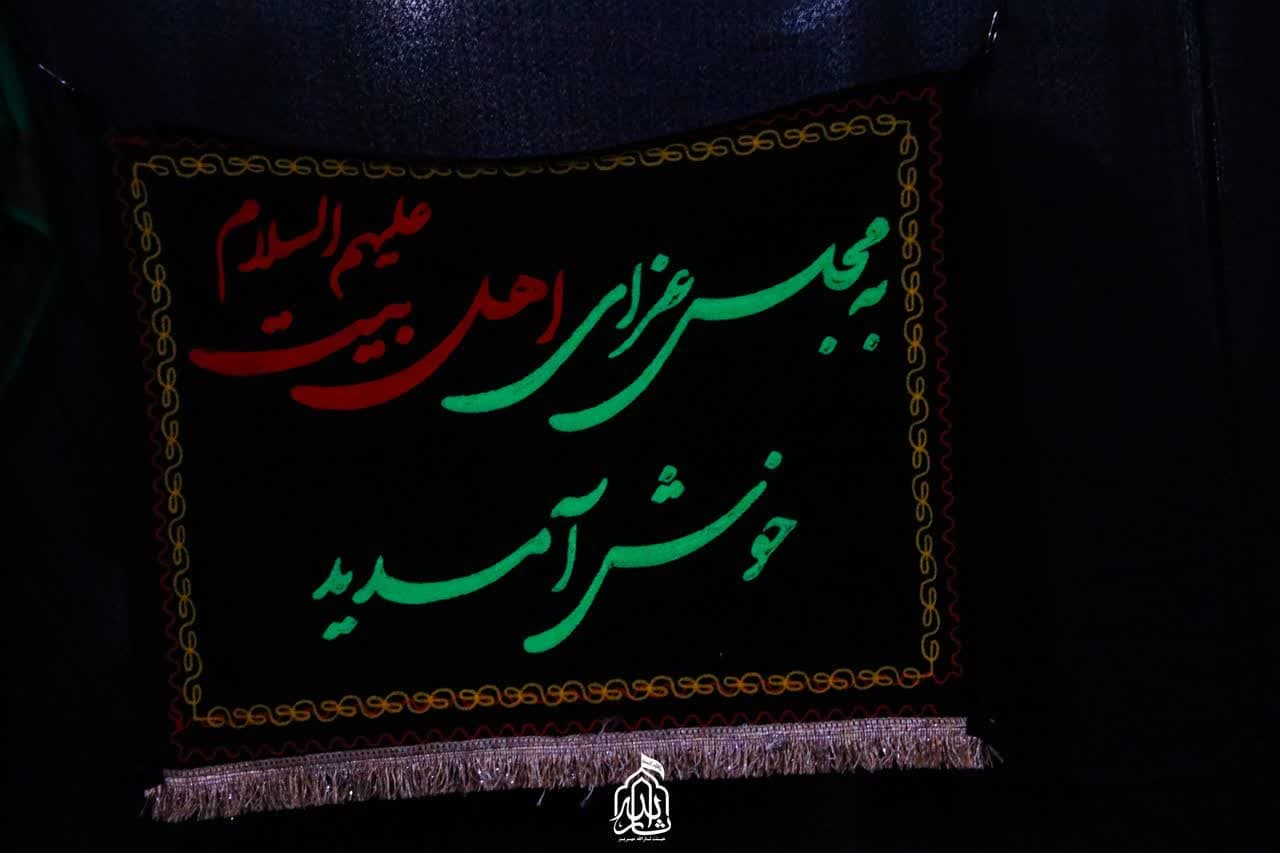 به مجلس عزای اهل بیت علیهم السلام
خوش آمدید
ثارالله